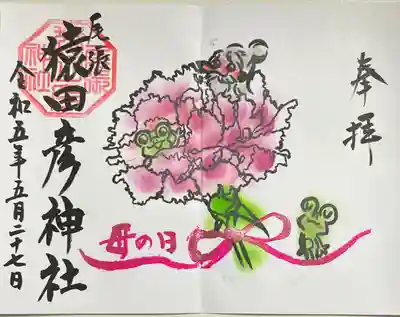 奉拝
尾張
猿田彦神社
令和五年五月二十七日
母の日